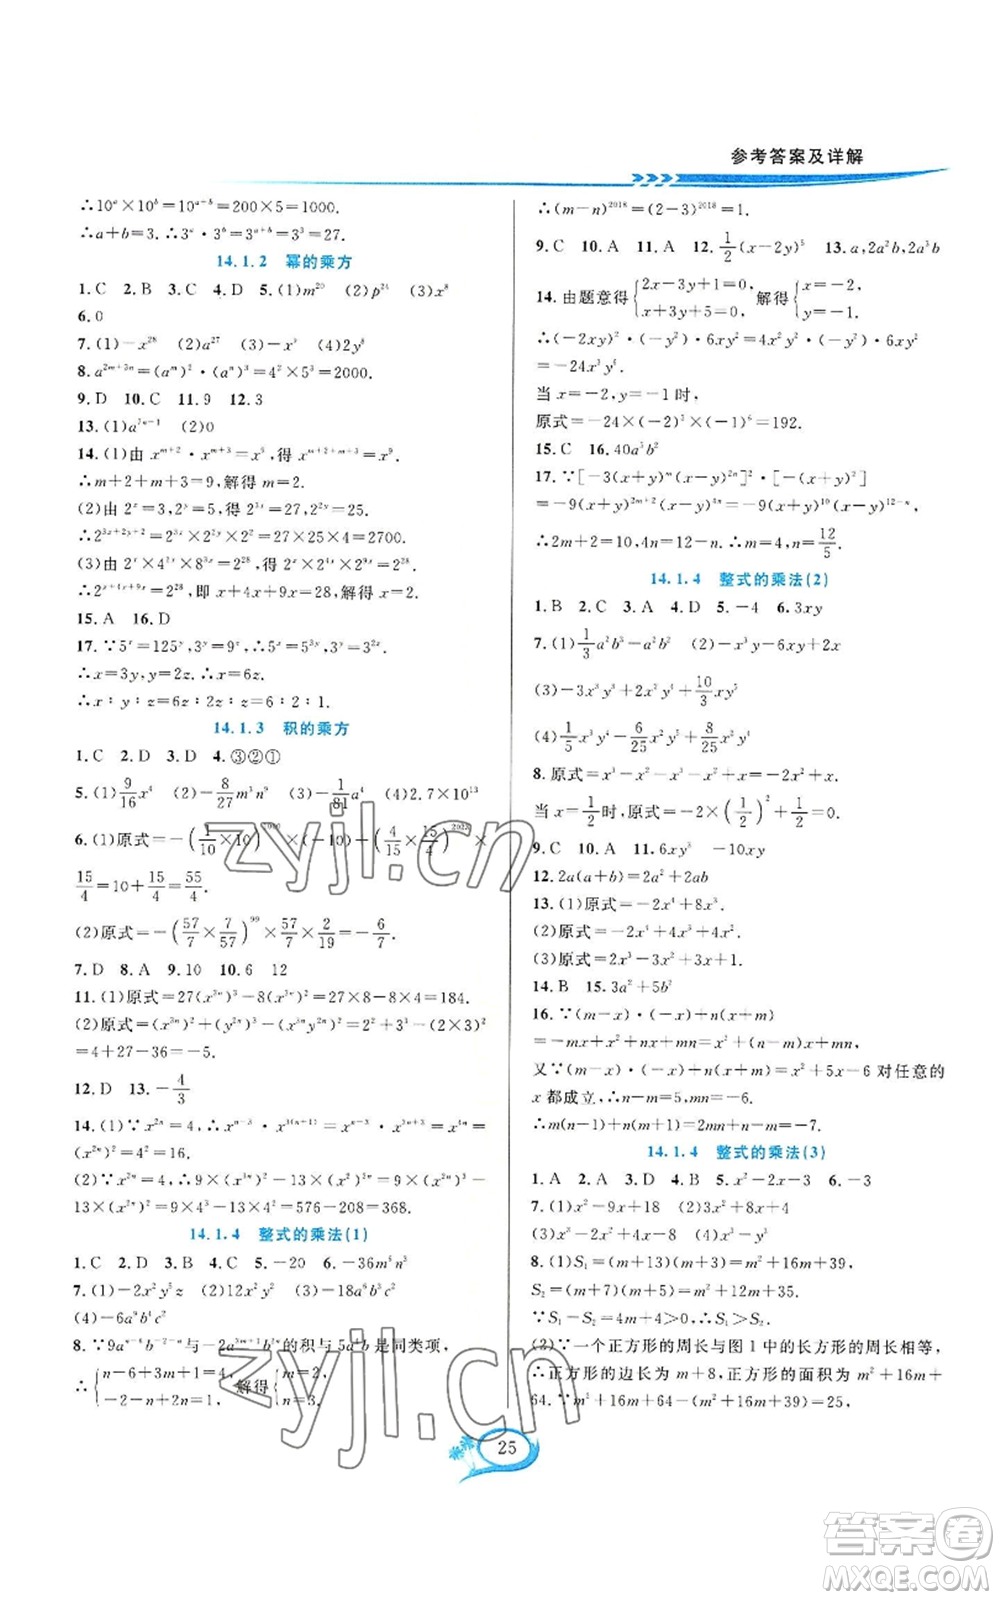 参考答案及详解
∴10ᵃ×10ᵇ=10ᵃ⁺ᵇ=200×5=1000.
∴a+b=3.∴3ᵃ·3ᵇ=3ᵃ⁺ᵇ=3³=27.
14.1.2 幂的乘方
1.C 2.B 3.C 4.D 5.(1)m²⁰ (2)p²⁴ (3)x⁸
6.0
7.(1)-x²⁸ (2)a²⁷ (3)-x⁹ (4)2y⁸
8.a²ᵐ⁺³ⁿ=(aᵐ)²·(aⁿ)³=4²×5³=2000.
9.D 10.C 11.9 12.3
13.(1) (2)0
14.(1)由 xᵐ⁺²·xᵐ⁺³=x⁹,得 =x⁹.
∴m+2+m+3=9,解得 m=2.
(2)由 2ˣ=3,2ʸ=5,得 2³ˣ=27,2²ʸ=25.
∴2³ˣ⁺²ʸ⁺²=2³ˣ×2²ʸ×2²=27×25×4=2700.
(3)由 2ˣ×4²ˣ×8³ˣ=2²⁸,得 2ˣ×2⁴ˣ×2⁹ˣ=2²⁸,
∴2ˣ⁺⁴ˣ⁺⁹ˣ=2²⁸,即 x+4x+9x=28,解得 x=2.
15.A 16.D
17.∵5ˣ=125ʸ,3ʸ=9ᶻ,∴5ˣ=5³ʸ,3ʸ=3²ᶻ.
∴x=3y,y=2z.∴x=6z.
∴x∶y∶z=6z∶2z∶z=6∶2∶1.
14.1.3 积的乘方
1.C 2.D 3.D 4.③②①
5.(1)9/16x⁴ (2)-8/27m³n⁹ (3)-1/81a⁴ (4)2.7×10¹³
6.(1)原式=-(1/10×10) ×(-10)+(4/15×15/4)²⁰²²×
15/4=10+15/4=55/4.
(2)原式=-(57/7×7/57)⁹⁹×57/7×2/19=-6/7.
7.D 8.A 9.10 10.6 12
11.(1)原式=27(x³ⁿ)³-8(x³ⁿ)²=27×8-8×4=184.
(2)原式=(x³ⁿ)²+(y²ⁿ)³-(x³ⁿy²ⁿ)²=2²+3³-(2×3)²
=4+27-36=-5.
12.D 13.-4/3
14.(1)∵x²ⁿ=4,∴xⁿ⁻³·x³⁽ⁿ⁺¹⁾=xⁿ⁻³·x³ⁿ⁺³=x⁴ⁿ=
(x²ⁿ)²=4²=16.
(2)∵x²ⁿ=4,∴9(x³ⁿ)²-13(x²)²ⁿ=9(x²ⁿ)³-13(x²ⁿ)²
=9×4³-13×4²=576-208=368.
14.1.4 整式的乘法(1)
1.C 2.B 3.A 4.C 5.-20 6.-36m⁵
7.(1)-2x²y⁵z (2)12x²y³ (3)-18a⁶b⁶c²
(4)-6a⁹b⁴c²
8.∵9aⁿ⁻⁶b⁻²⁻ⁿ与-2a³ᵐ⁺¹b²ⁿ的积与5a⁴b是同类项,
∴{n-6+3m+1=4, -2-n+2n=1, 解得{m=2, n=3.
∴(m-n)²⁰¹⁸=(2-3)²⁰¹⁸=1.
9.C 10.A 11.A 12.1/2(x-2y)⁵ 13.a,2a²b,6a³b
14.由题意得{2x-3y+1=0, x+3y+5=0, 解得{x=-2, y=-1.
∴(-2xy)²·(-y²)·6xy²=4x²y²·(-y²)·6xy²
=-24x³y⁶.
当 x=-2,y=-1时,
原式=-24×(-2)³×(-1)⁶=192.
15.C 16.40a⁵b²
17.∵[-3(x+y)ᵐ(x-y)²ⁿ]²·[-(x+y)²(x-y)²]
=-9(x+y)²ᵐ⁺²(x-y)⁴ⁿ=-9(x+y)¹⁰(x-y)¹²⁻ⁿ,
∴2m+2=10,4n=12-n.∴m=4,n=12/5.
14.1.4 整式的乘法(2)
1.B 2.C 3.A 4.D 5.-4 6.3xy
7.(1)1/3a²b³-a²b² (2)-x³y-6xy+2x
(3)-3x³y⁴-6x²y⁴+10/3xy⁵
(4)1/5x³y-6/25x²y²+8/25x²y
8.原式=x³-x²-x³-x²+x=-2x²+x.
当 x=1/2时,原式=-2×(1/2)²+1/2=0.
9.C 10.A 11.6xy³ -10xy
12.2a(a+b)=2a²+2ab
13.(1)原式=-2x⁴+8x³.
(2)原式=2x⁴+4x³-2x²-4x.
(3)原式=2x³-3x²+x.
14.B 15.3a²+5b²
16.∵(m-x)·(-x)+n(x+m)
=-mx+x²+nx+mn=x²+(n-m)x+mn,
又∵(m-x)·(-x)+n(x+m)=x²+5x-6 对任意的
x 都成立,∴n-m=5,mn=-6.
∴m(n-1)+n(m+1)=mn-m+mn+n=-7.
14.1.4 整式的乘法(3)
1.A 2.C 3.B 4.A 5.x²-2x-3 6.-3
7.(1)x²-9x+18 (2)x²+8x+4
(3)x³-6x²-x+6 (4)x³-y³
8.(1)S₁=(m+13)(m+3)=m²+16m+39,
S₂=(m+7)(m+5)=m²+12m+35.
∵S₁-S₂=4m+4>0,∴S₁>S₂.
(2)∵一个正方形的周长与图 1 中的长方形的周长相等,
∴正方形的边长为 m+8,正方形的面积为 m²+16m+
64.∵m²+16m+64-(m²+16m+39)=25,
25
zyjl.cn
zyjl.cn
答案圈
MXQE.COM